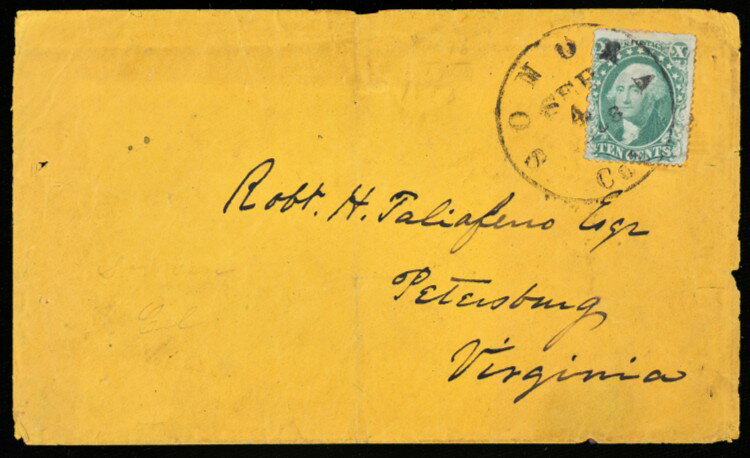 SONORA
SEP
4
X
TEN CENTS
Robt. H. Taliaferro Esqr
Petersburg
Virginia